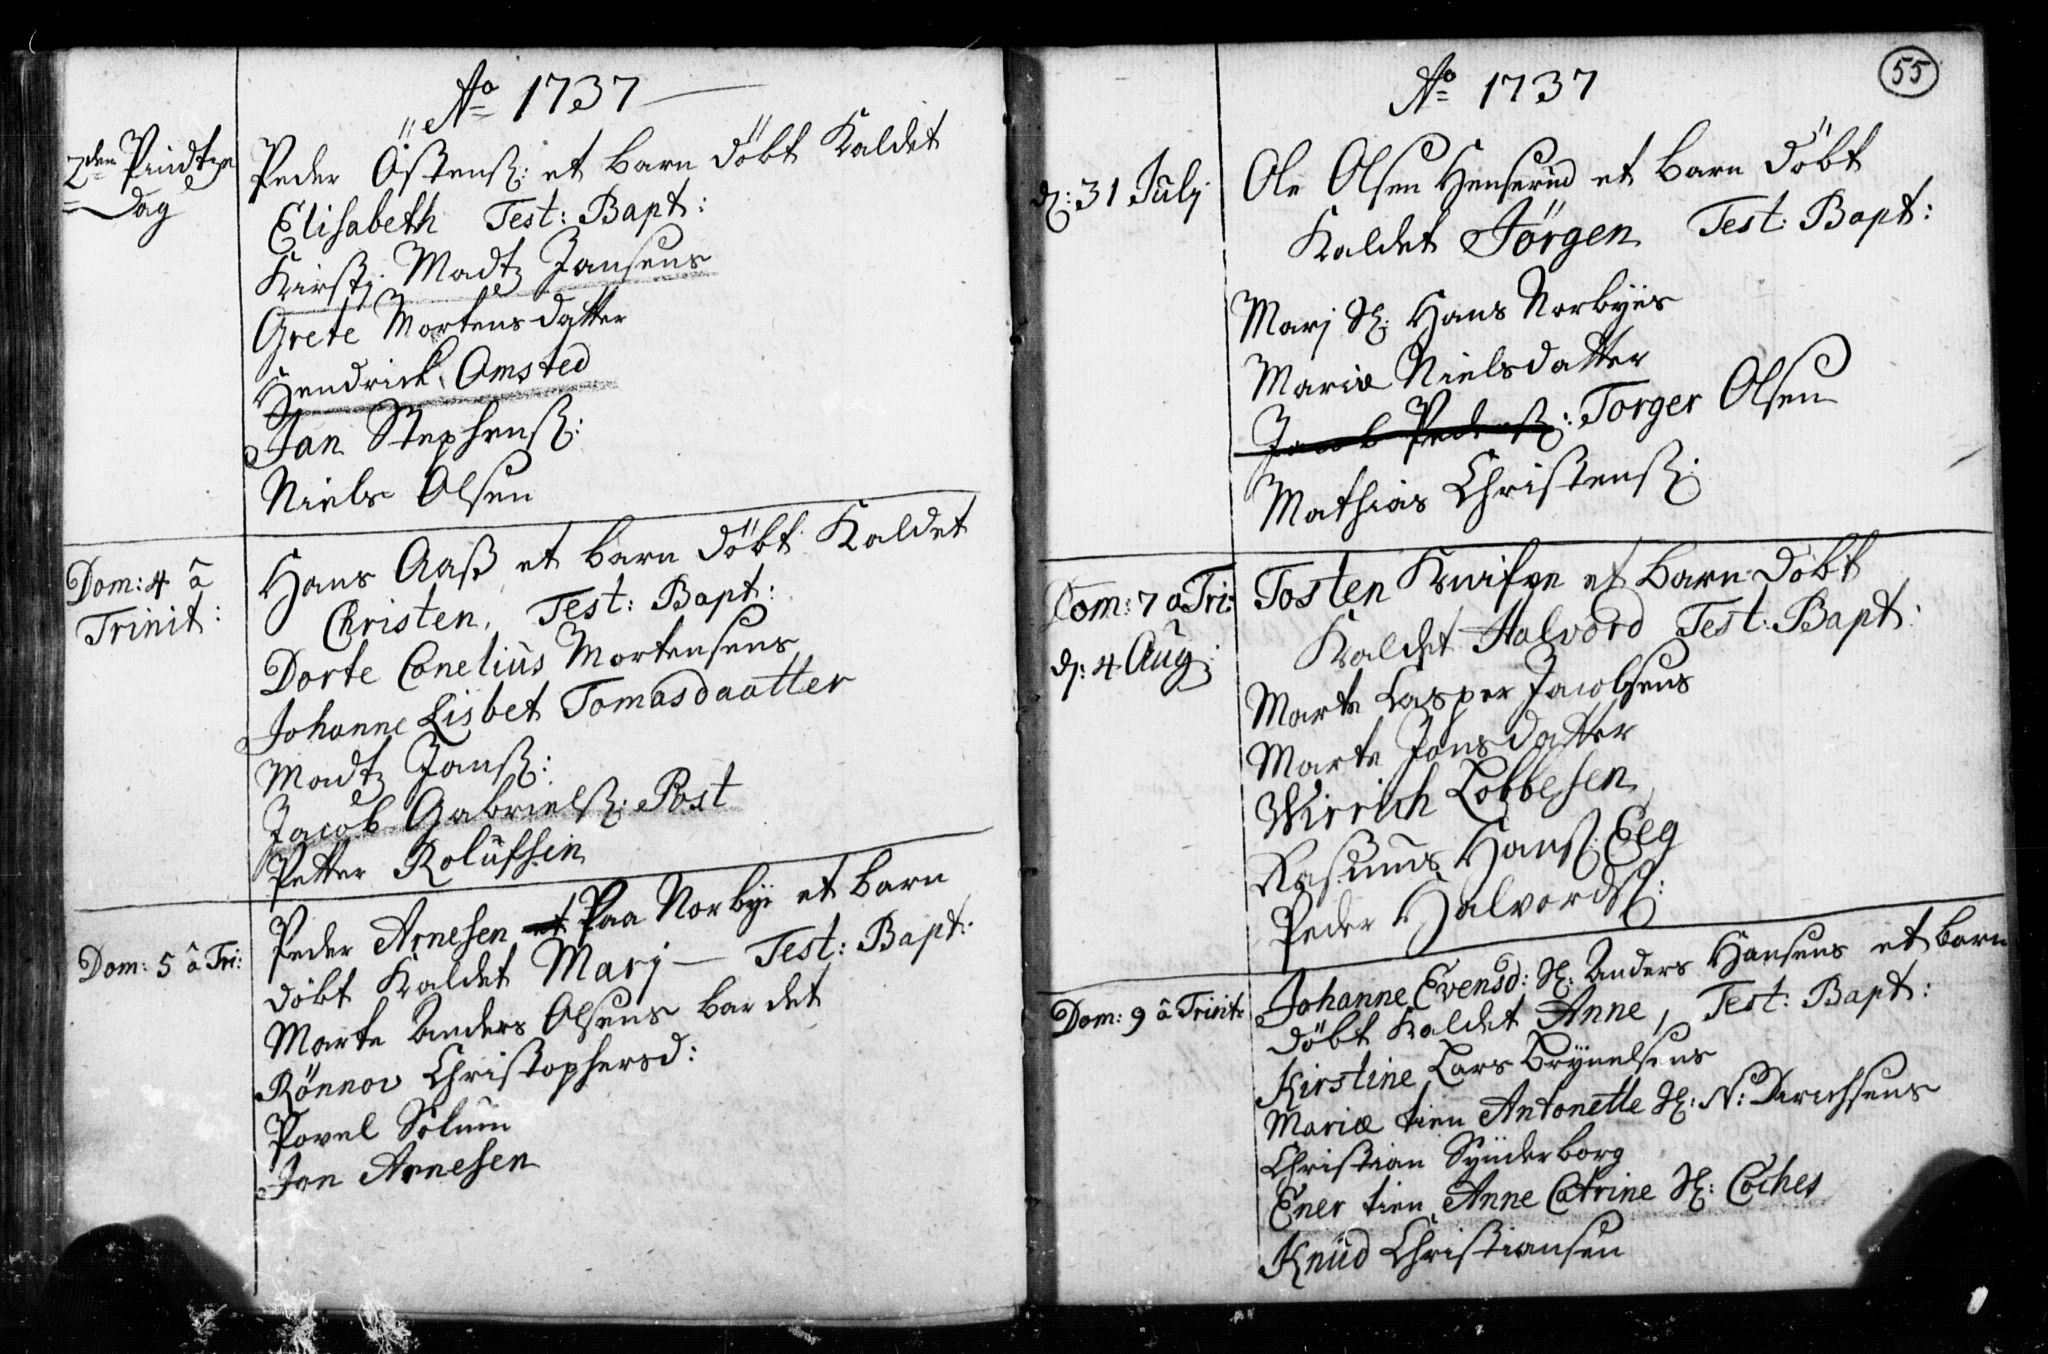 Ao 1737
2den Pindtze
Dag
Peder Östensß: et barn döbt Kaldet
Elisabeth Test: Bapt:
Kirstj Madtz Jansens
Grete Mortensdatter
Hendrick Omsted
Jan Stephensß:
Niels Olsen
Dom: 4 â
Trinit:
Hans Aaß et barn döbt Kaldet
Christen, Test: Bapt:
Dorte Conelius Mortensens
Johanne Lisbet Tomasdaatter
Madtz Jansß:
Jacob Gabrielsß: Post
Petter Rolufsen
Dom: 5 â Tri:
Peder Arnesen et Paa Norbye et barn
döbt Kaldet Marj — Test: Bapt:
Marte Anders Olsens bar det
Rönnov Christophersd:
Povel Solum
Jon Arnesen
55
Ao 1737
d: 31 Julj
Ole Olsen Henserud et barn döbt
Kaldet Jörgen Test: Bapt:
Marj Sl: Hans Norbyes
Mariæ Nielsdatter
Jacob Pedersß: Torger Olsen
Mathias Christensß:
Dom: 7 a Tri:
d: 4 Aug:
Tosten Knifve et barn döbt
Kaldet Halvord Test: Bapt:
Marte Casper Jacobsens
Marte Jonsdatter
Wirrich Lobbesen
Rasmus Hansß: Elg
Peder Halvordsß:
Dom: 9 â Trinit:
Johanne Evensd: Sl: Anders Hansens et barn
döbt Kaldet Anne, Test: Bapt:
Kirstine Lars Brynelsens
Mariæ tien Antonette Sl: N: Dirichsens
Christian Synderborg
Ener tien Anne Catrine Sl: Coches
Knud Christiansen